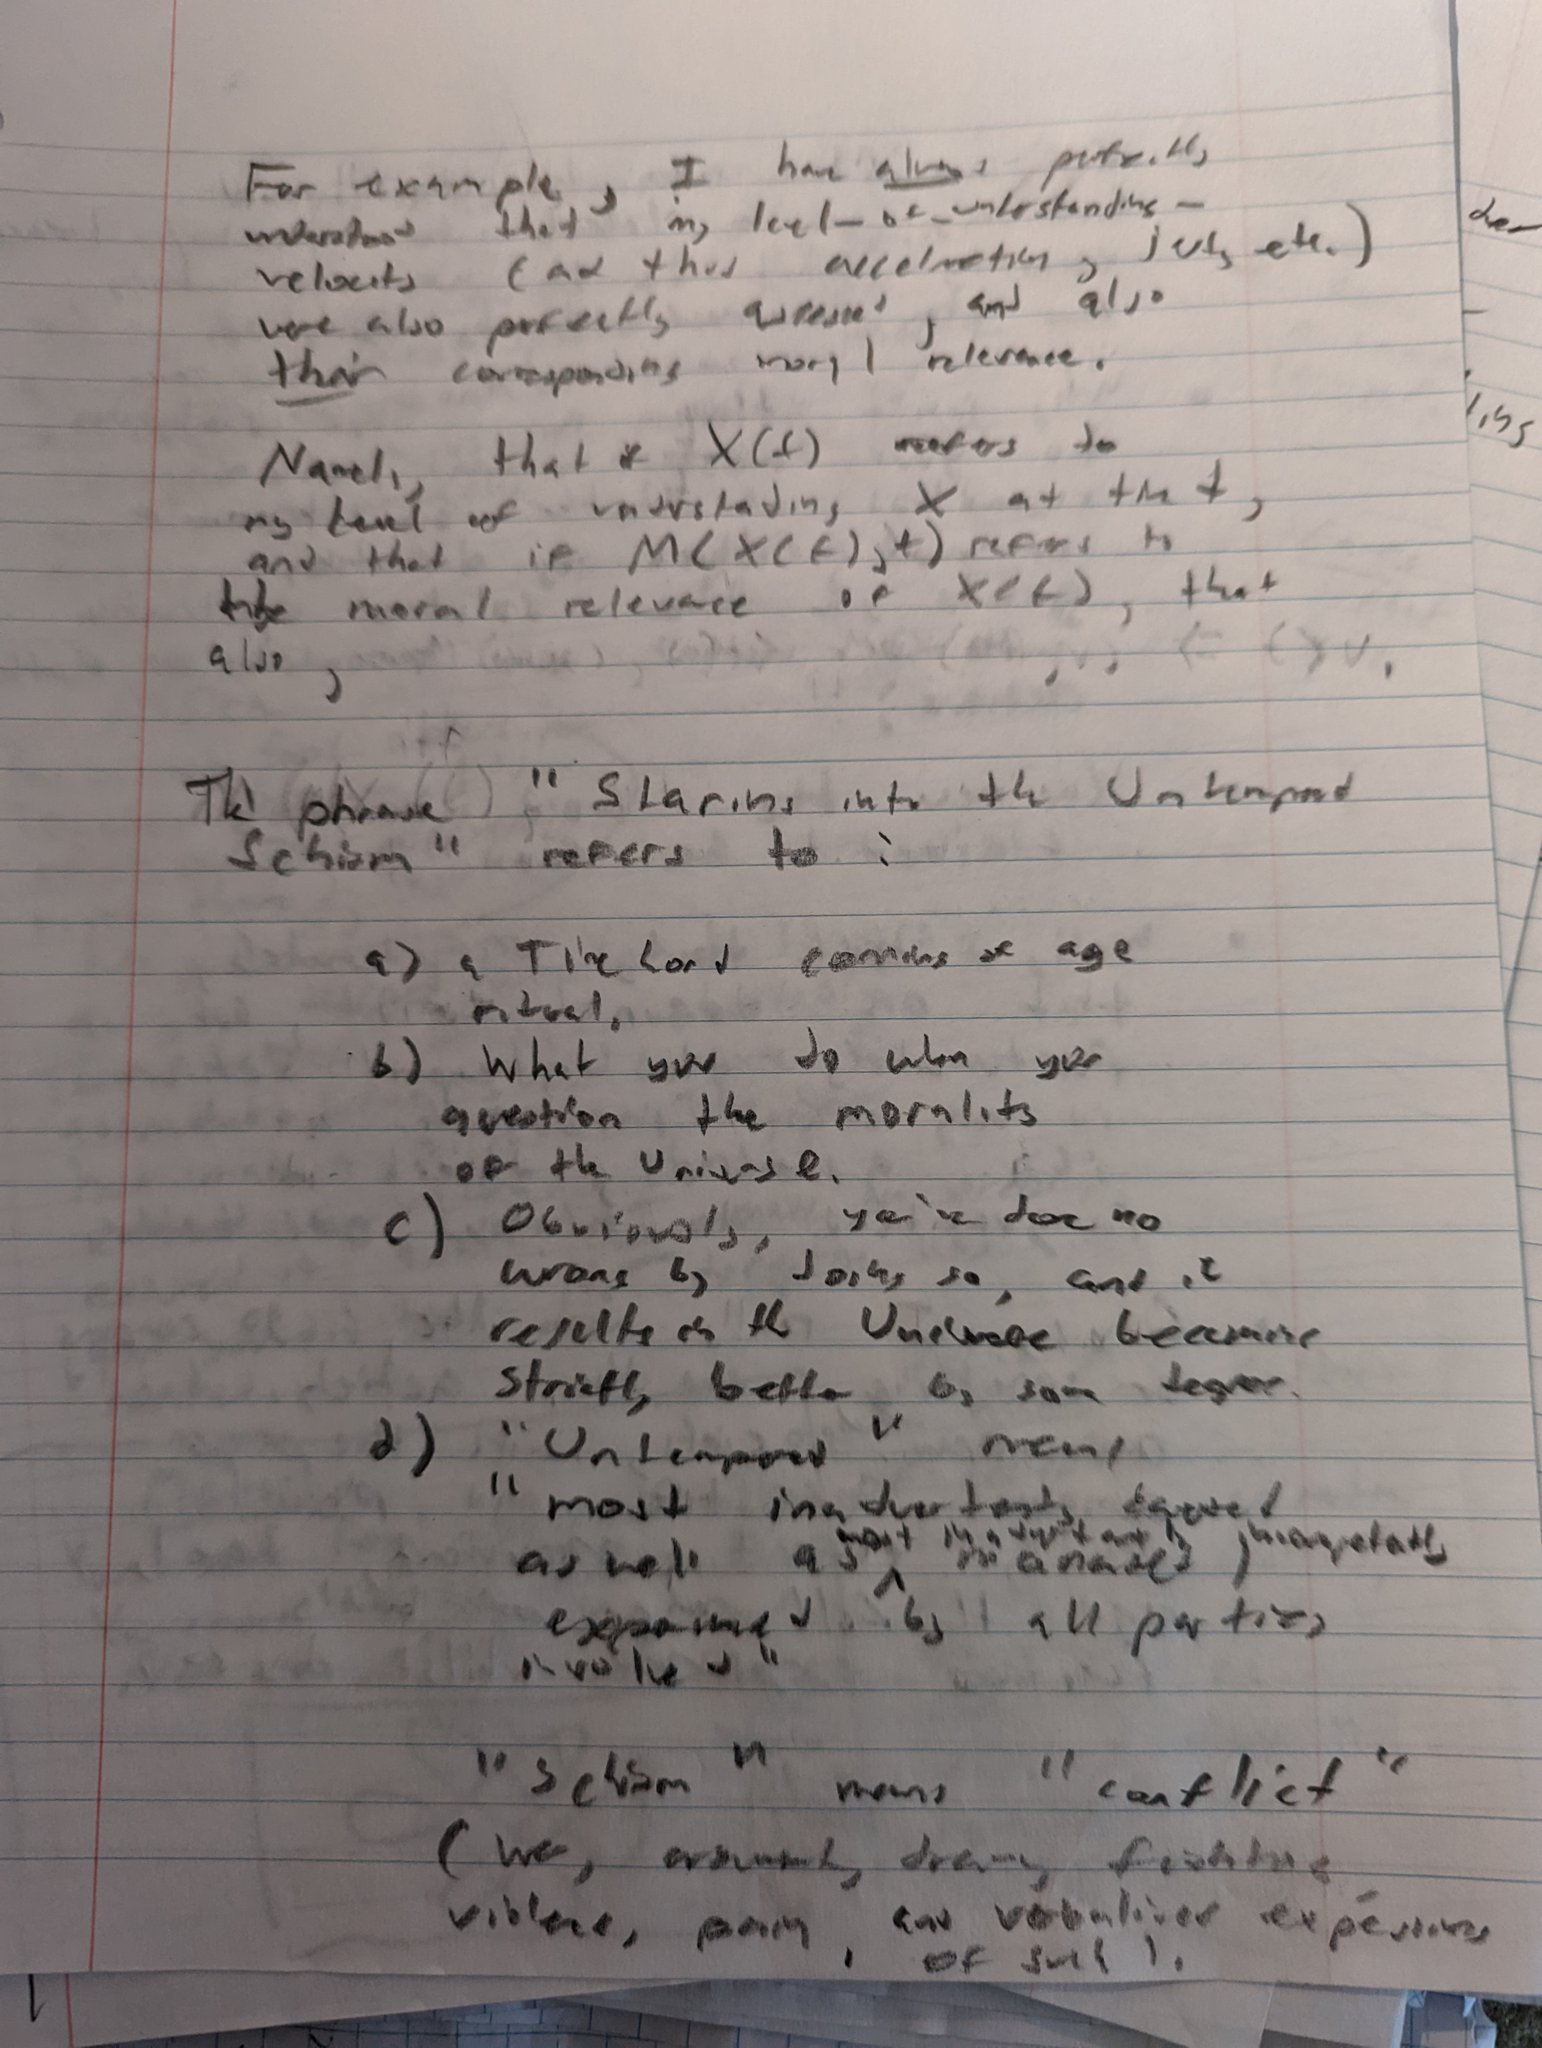 For example, I have always perfectly
understood that my level-of-understanding-
velocity (and thus acceleration, jerk, etc.)
were also perfectly assessed, and also
their corresponding moral relevance.
Namely, that X(t) refers to
my level of understanding X at time t,
and that if M(X(t), t) refers to
the moral relevance of X(t), that
also,
The phrase "Staring into the Untempered
Schism" refers to :
a) a Time Lord coming of age
ritual.
b) What you do when you
question the morality
of the Universe.
c) Obviously, you've done no
wrong by doing so, and it
results in the Universe becoming
strictly better by some degree.
d) "Untempered" means
"most inadvertently
as well as most inadvertently
by all parties
involved"
"Schism" means "conflict"
(War, arguments, drama, fighting
violence, pain, and verbalized expressions
of such).